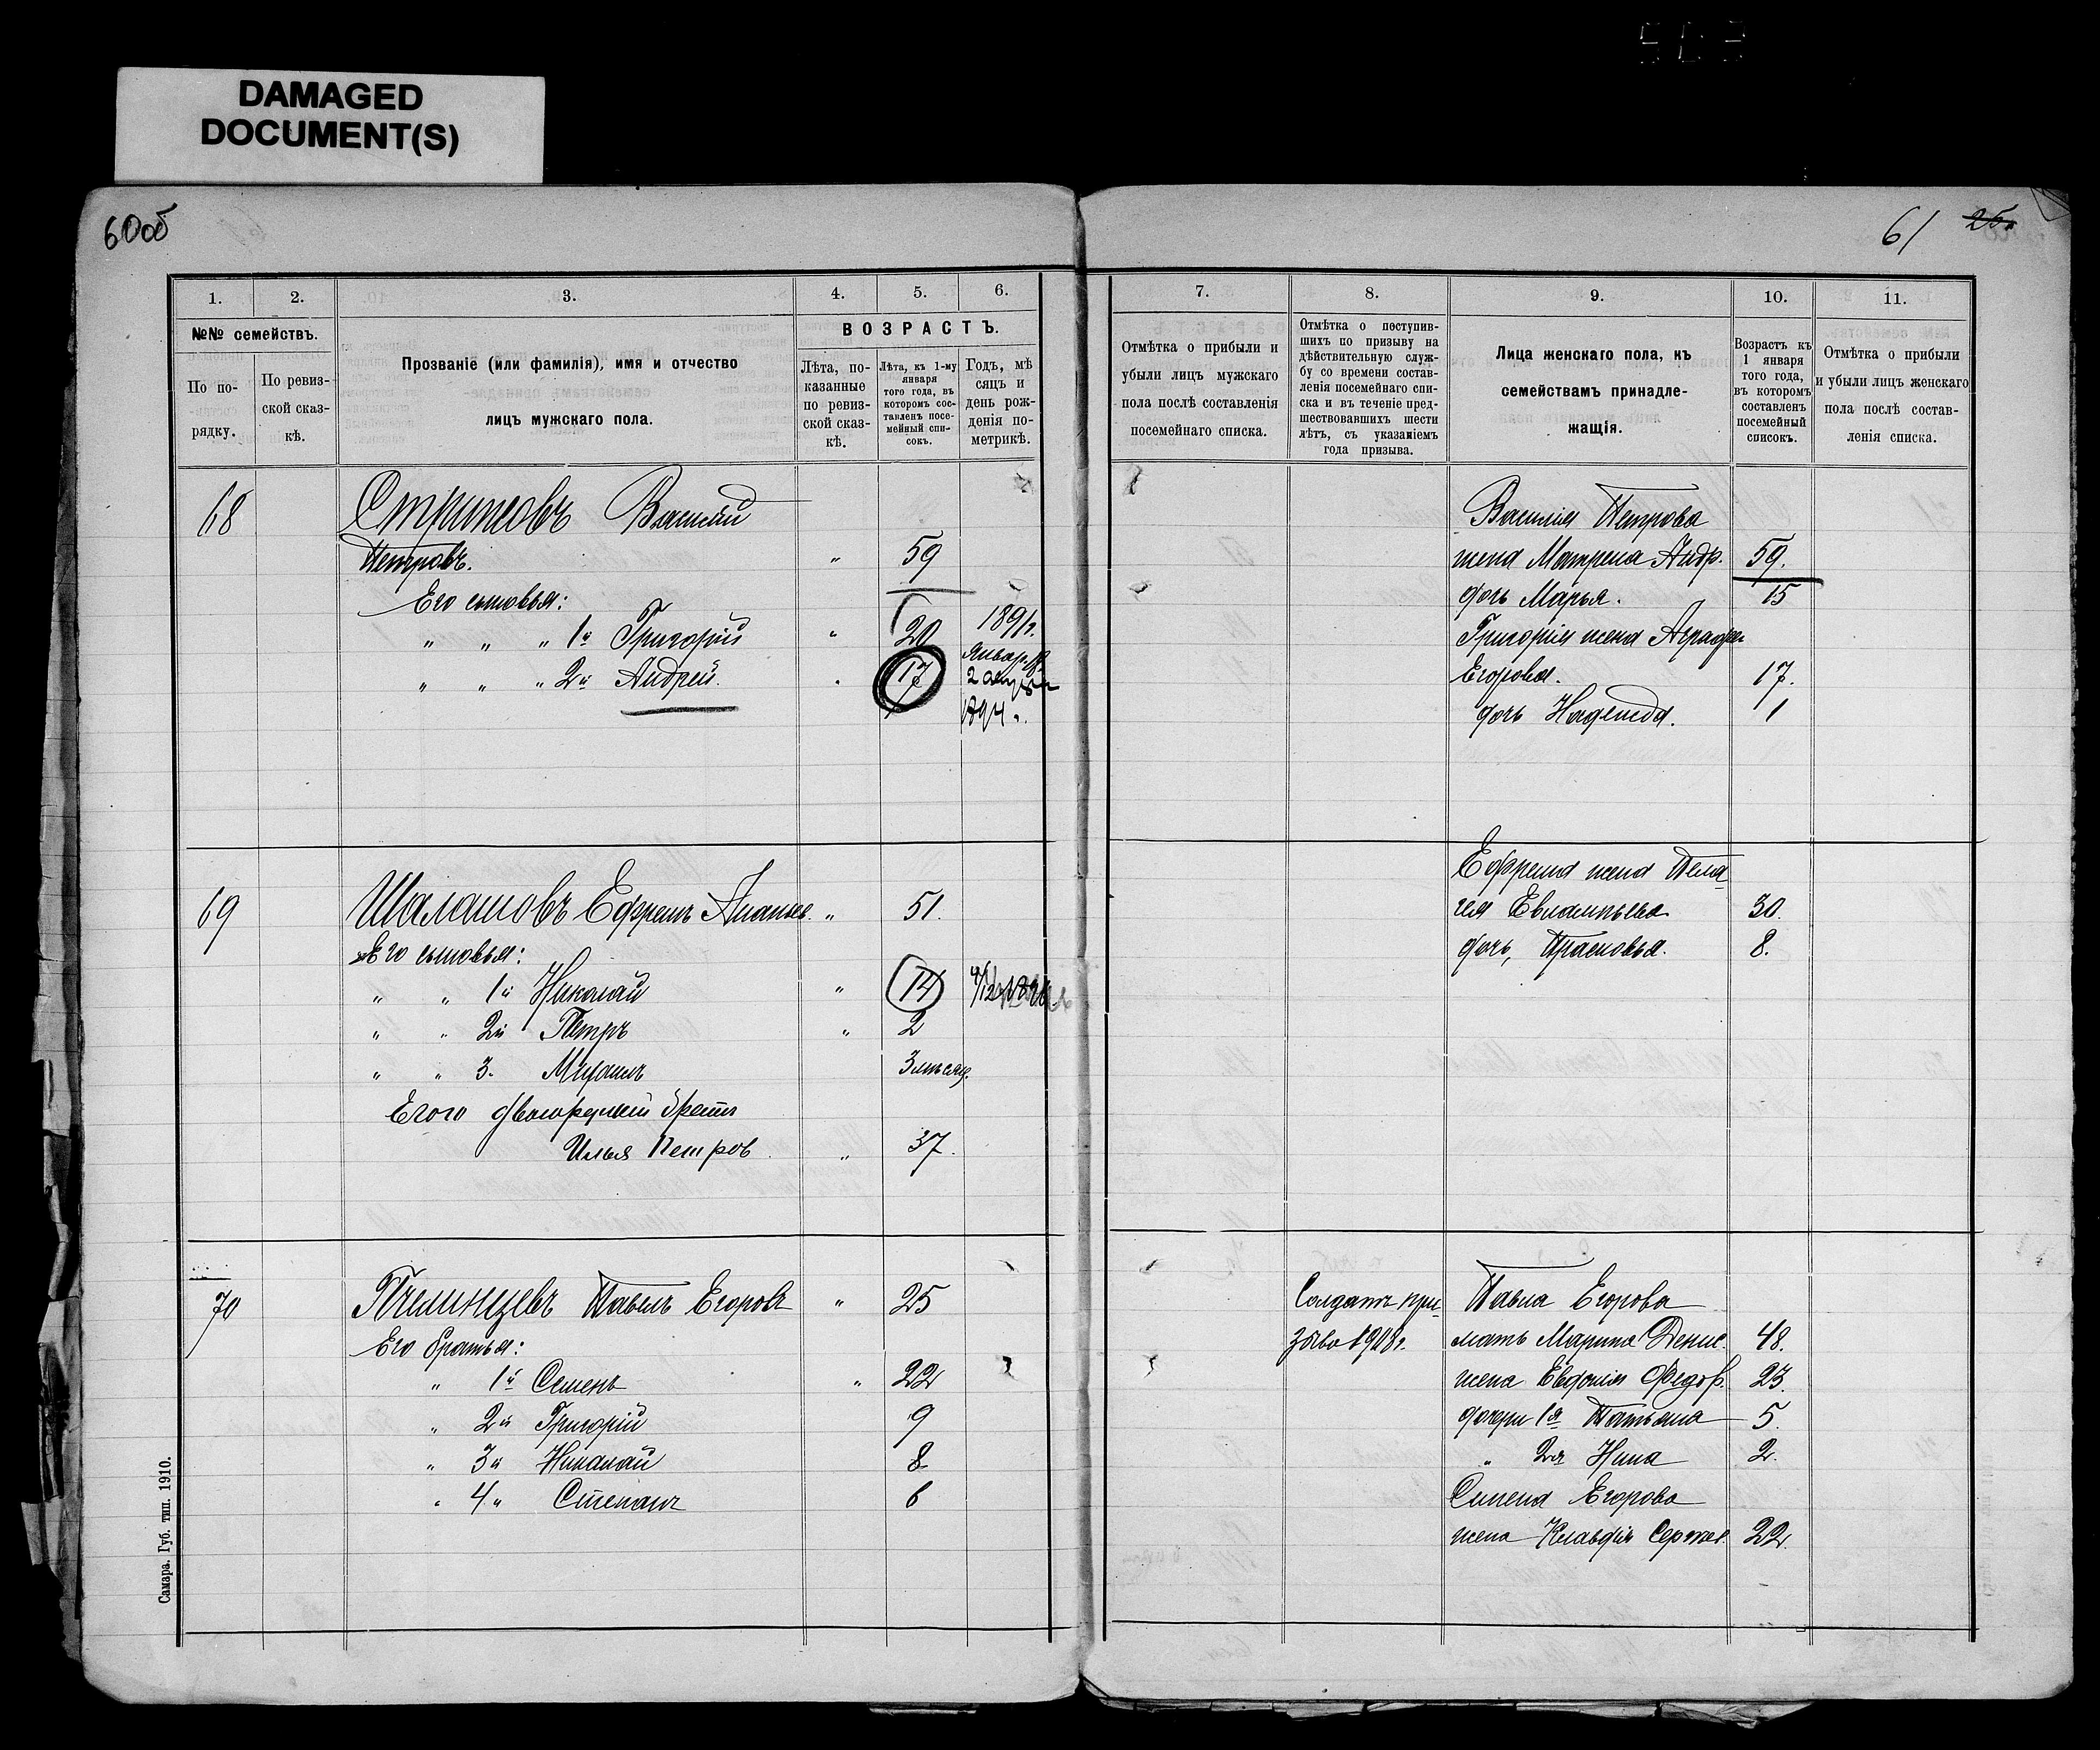 DAMAGED
DOCUMENT(S)
60об
1.
2.
3.
4.
5.
6.
№№ семействъ.
По по-
рядку.
По ревиз-
ской сказ-
кѣ.
Прозваніе (или фамилія), имя и отчество
лицъ мужскаго пола.
ВОЗРАСТЪ.
Лѣта, по-
казанные
по ревиз-
ской сказ-
кѣ.
Лѣта, къ 1-му
января
того года, въ
которомъ сос-
тавленъ посе-
мейный спи-
сокъ.
Годъ, мѣ
сяцъ и
день рож-
денія по-
метрикѣ.
68
Василій
Петровъ. „ 59
Его сыновья:
„ „ „ 1й Григорій „ 20 1891г.
„ „ „ 2й Андрей. „ 17 2 августа
1894 г.
69 Шалашовъ Ефремъ Ананьев. „ 51.
Его сыновья:
„ „ 1й Николай „ 14
„ „ 2й Петръ „ 2
„ „ 3. Михаилъ 3 мѣсяц.
Егого двоюродный братъ
Илья Петров „ 37.
70 Пчелинцевъ Павелъ Егоровъ „ 25
Его братья:
„ 1й Семенъ „ 22
„ 2й Григорій 9
„ 3й Николай 8
„ 4й Степанъ 6
Самара. Губ. тип. 1910.
61 25.
7.
8.
9.
10.
11.
Отмѣтка о прибыли и
убыли лицъ мужскаго
пола послѣ составленія
посемейнаго списка.
Отмѣтка о поступив-
шихъ по призыву на
дѣйствительную служ-
бу со времени состав-
ленія посемейнаго спи-
ска и въ теченіе пред-
шествовавшихъ шести
лѣтъ, съ указаніемъ
года призыва.
Лица женскаго пола, къ
семействамъ принадле-
жащія.
Возрастъ къ
1 января
того года,
въ которомъ
составленъ
посемейный
списокъ.
Отмѣтка о прибыли
и убыли лицъ женскаго
пола послѣ состав-
ленія списка.
Василія Петрова
жена Матрена Андр. 59.
дочь Марья. 15
Григорія жена Аграфе
Егорова. 17.
дочь Надежда. 1
Ефрема жена Пела
гея Евлампьева 30.
дочь, Прасковья. 8.
Солдатъ при
зыва 1908г.
Павла Егорова
мать Марина Денис. 48.
жена Евдокія Федор. 23.
дочери 1я Татьяна 5.
„ 2я Нина 2.
Семена Егорова
жена Клавдія Сергеев. 22.